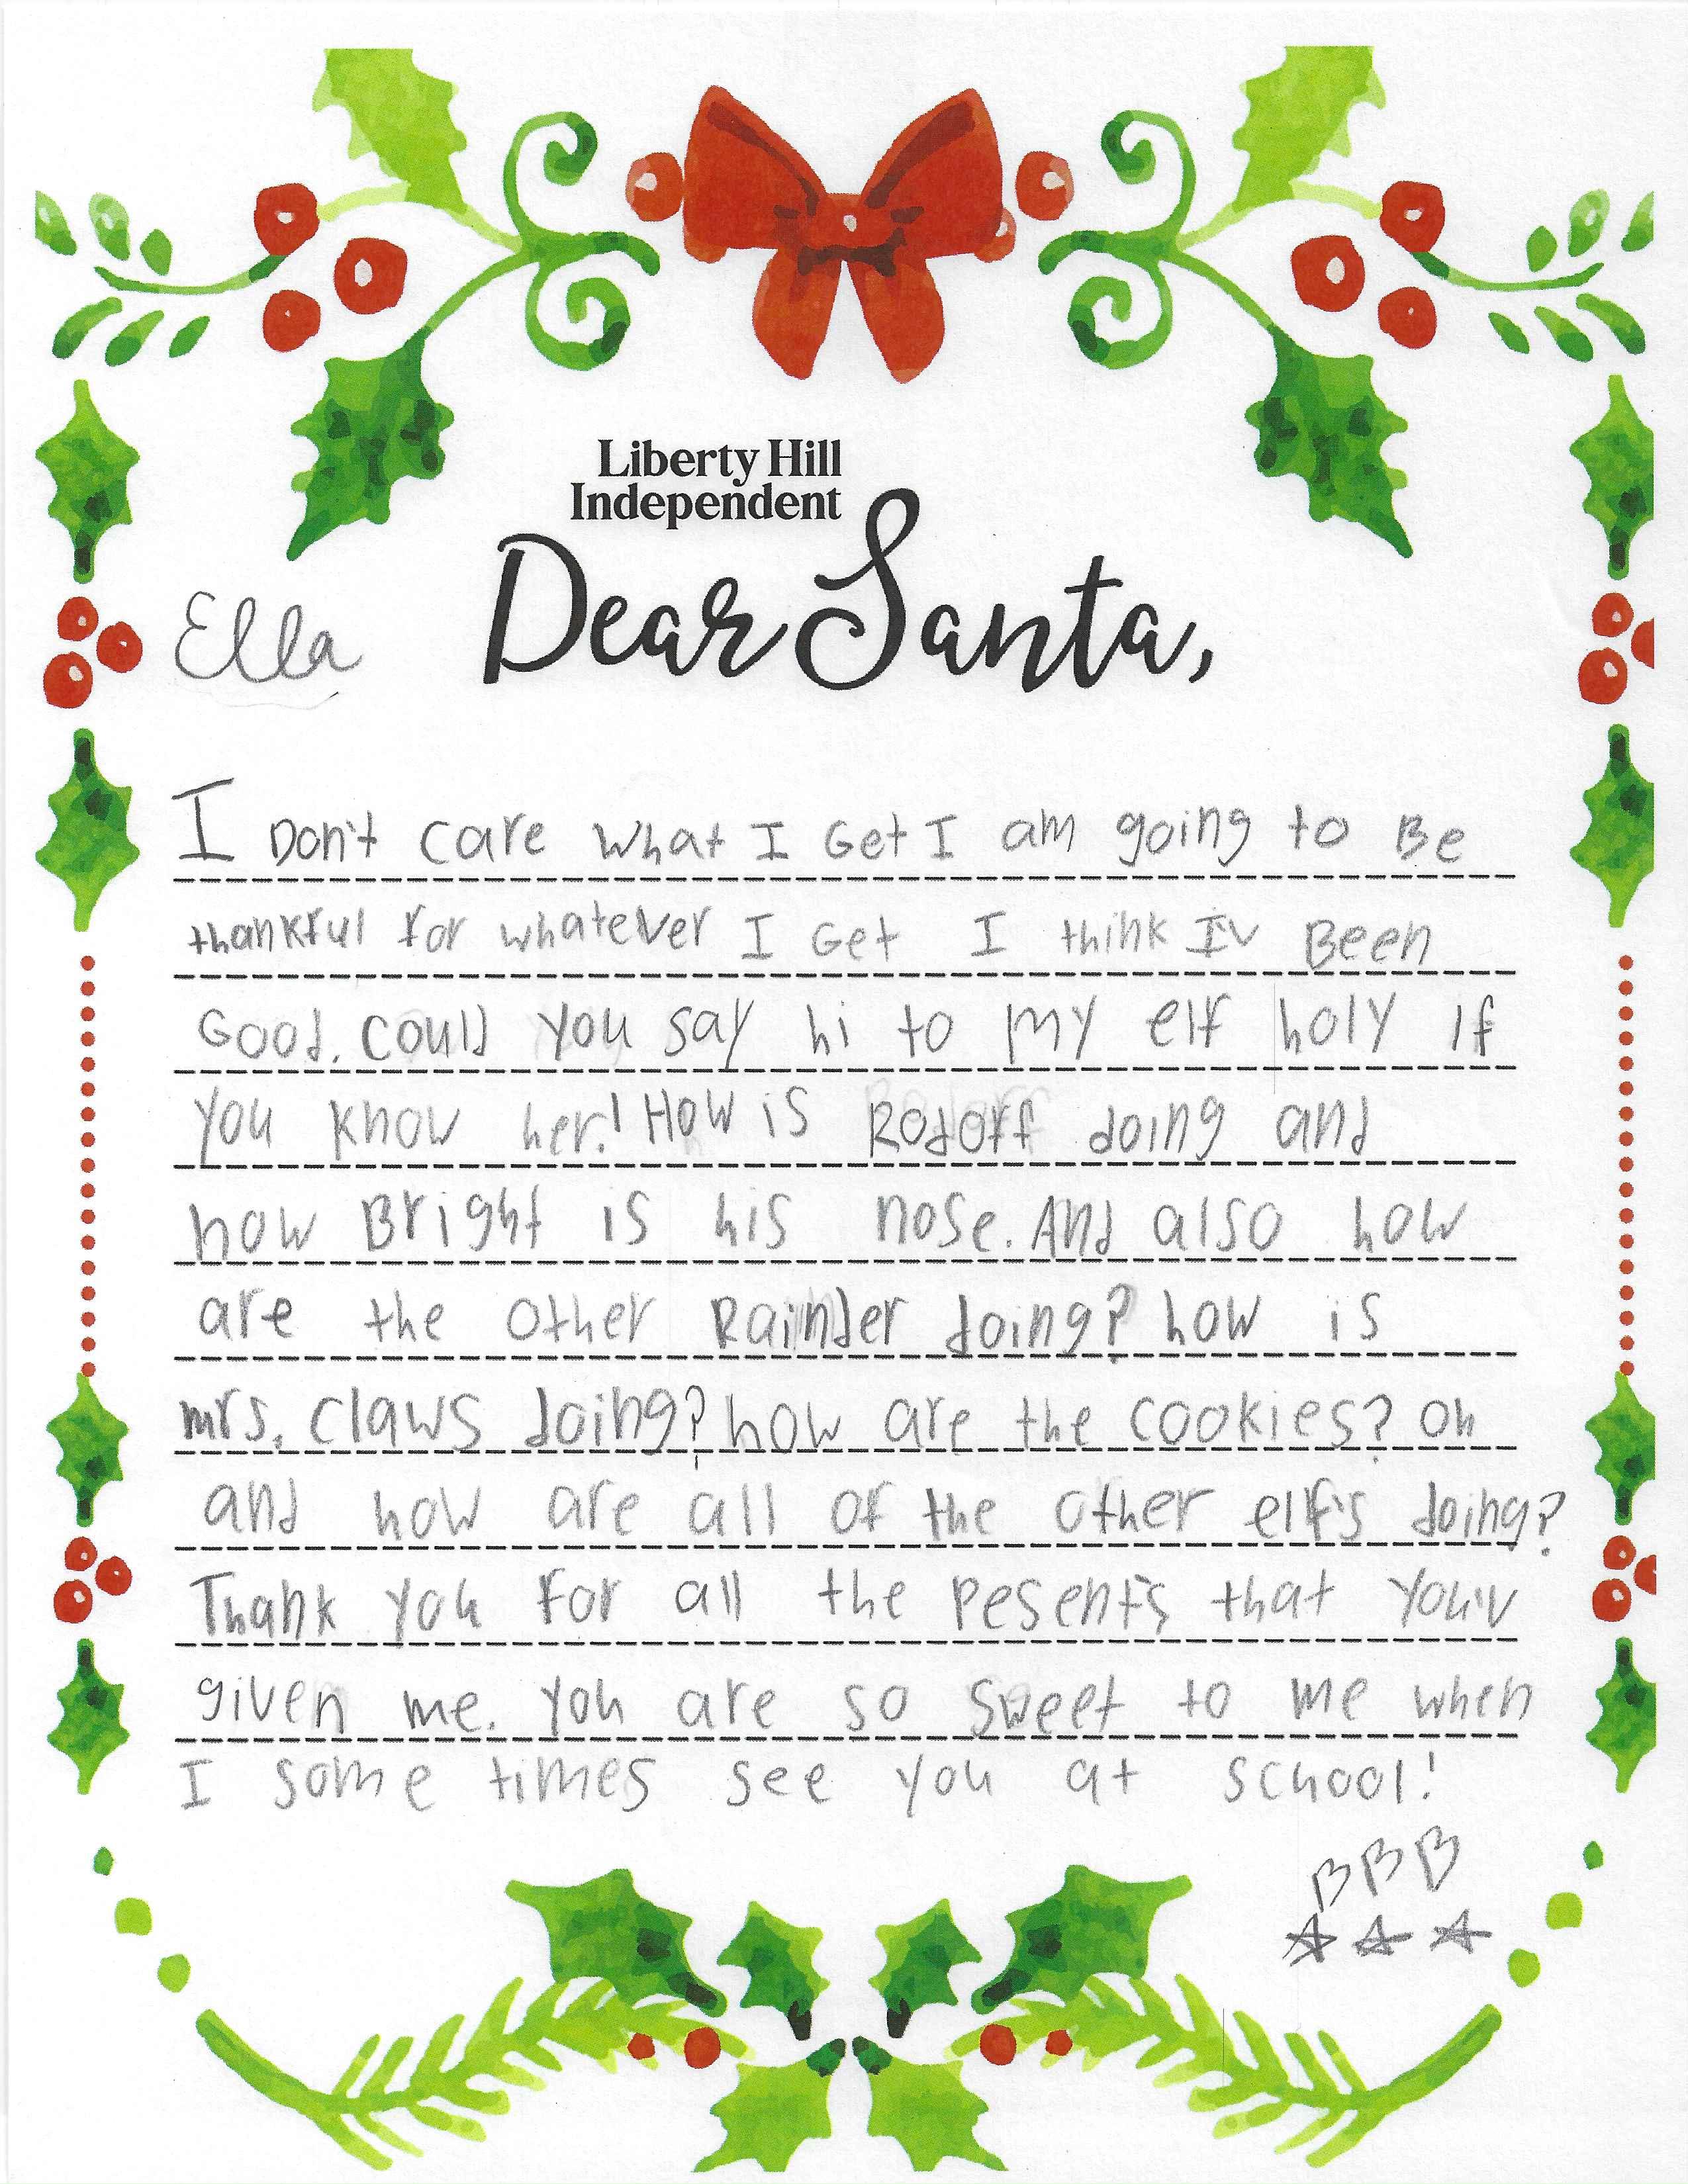 Liberty Hill
Independent
Dear Santa,
Ella
I Don't care what I Get I am going to Be
thankful for whatever I Get I think Iv Been
Good. could you say hi to my elf holy If
you know her! How is Rodoff doing and
how Bright is his nose. And also how
are the other Rainder doing? how is
mrs. claws doing? how are the cookies? Oh
and how are all of the other elf's doing?
Thank you for all the Pesents that you'v
given me. you are so sweet to me when
I some times see you at school!